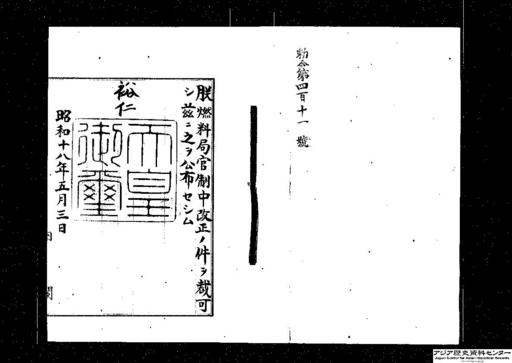 勅令第四百十一號
朕燃料局官制中改正ノ件ヲ裁可
シ茲ニ之ヲ公布セシム
裕仁
天皇
御璽
昭和十八年五月三日
内閣
アジア歴史資料センター
Japan Center for Asian Historical Records